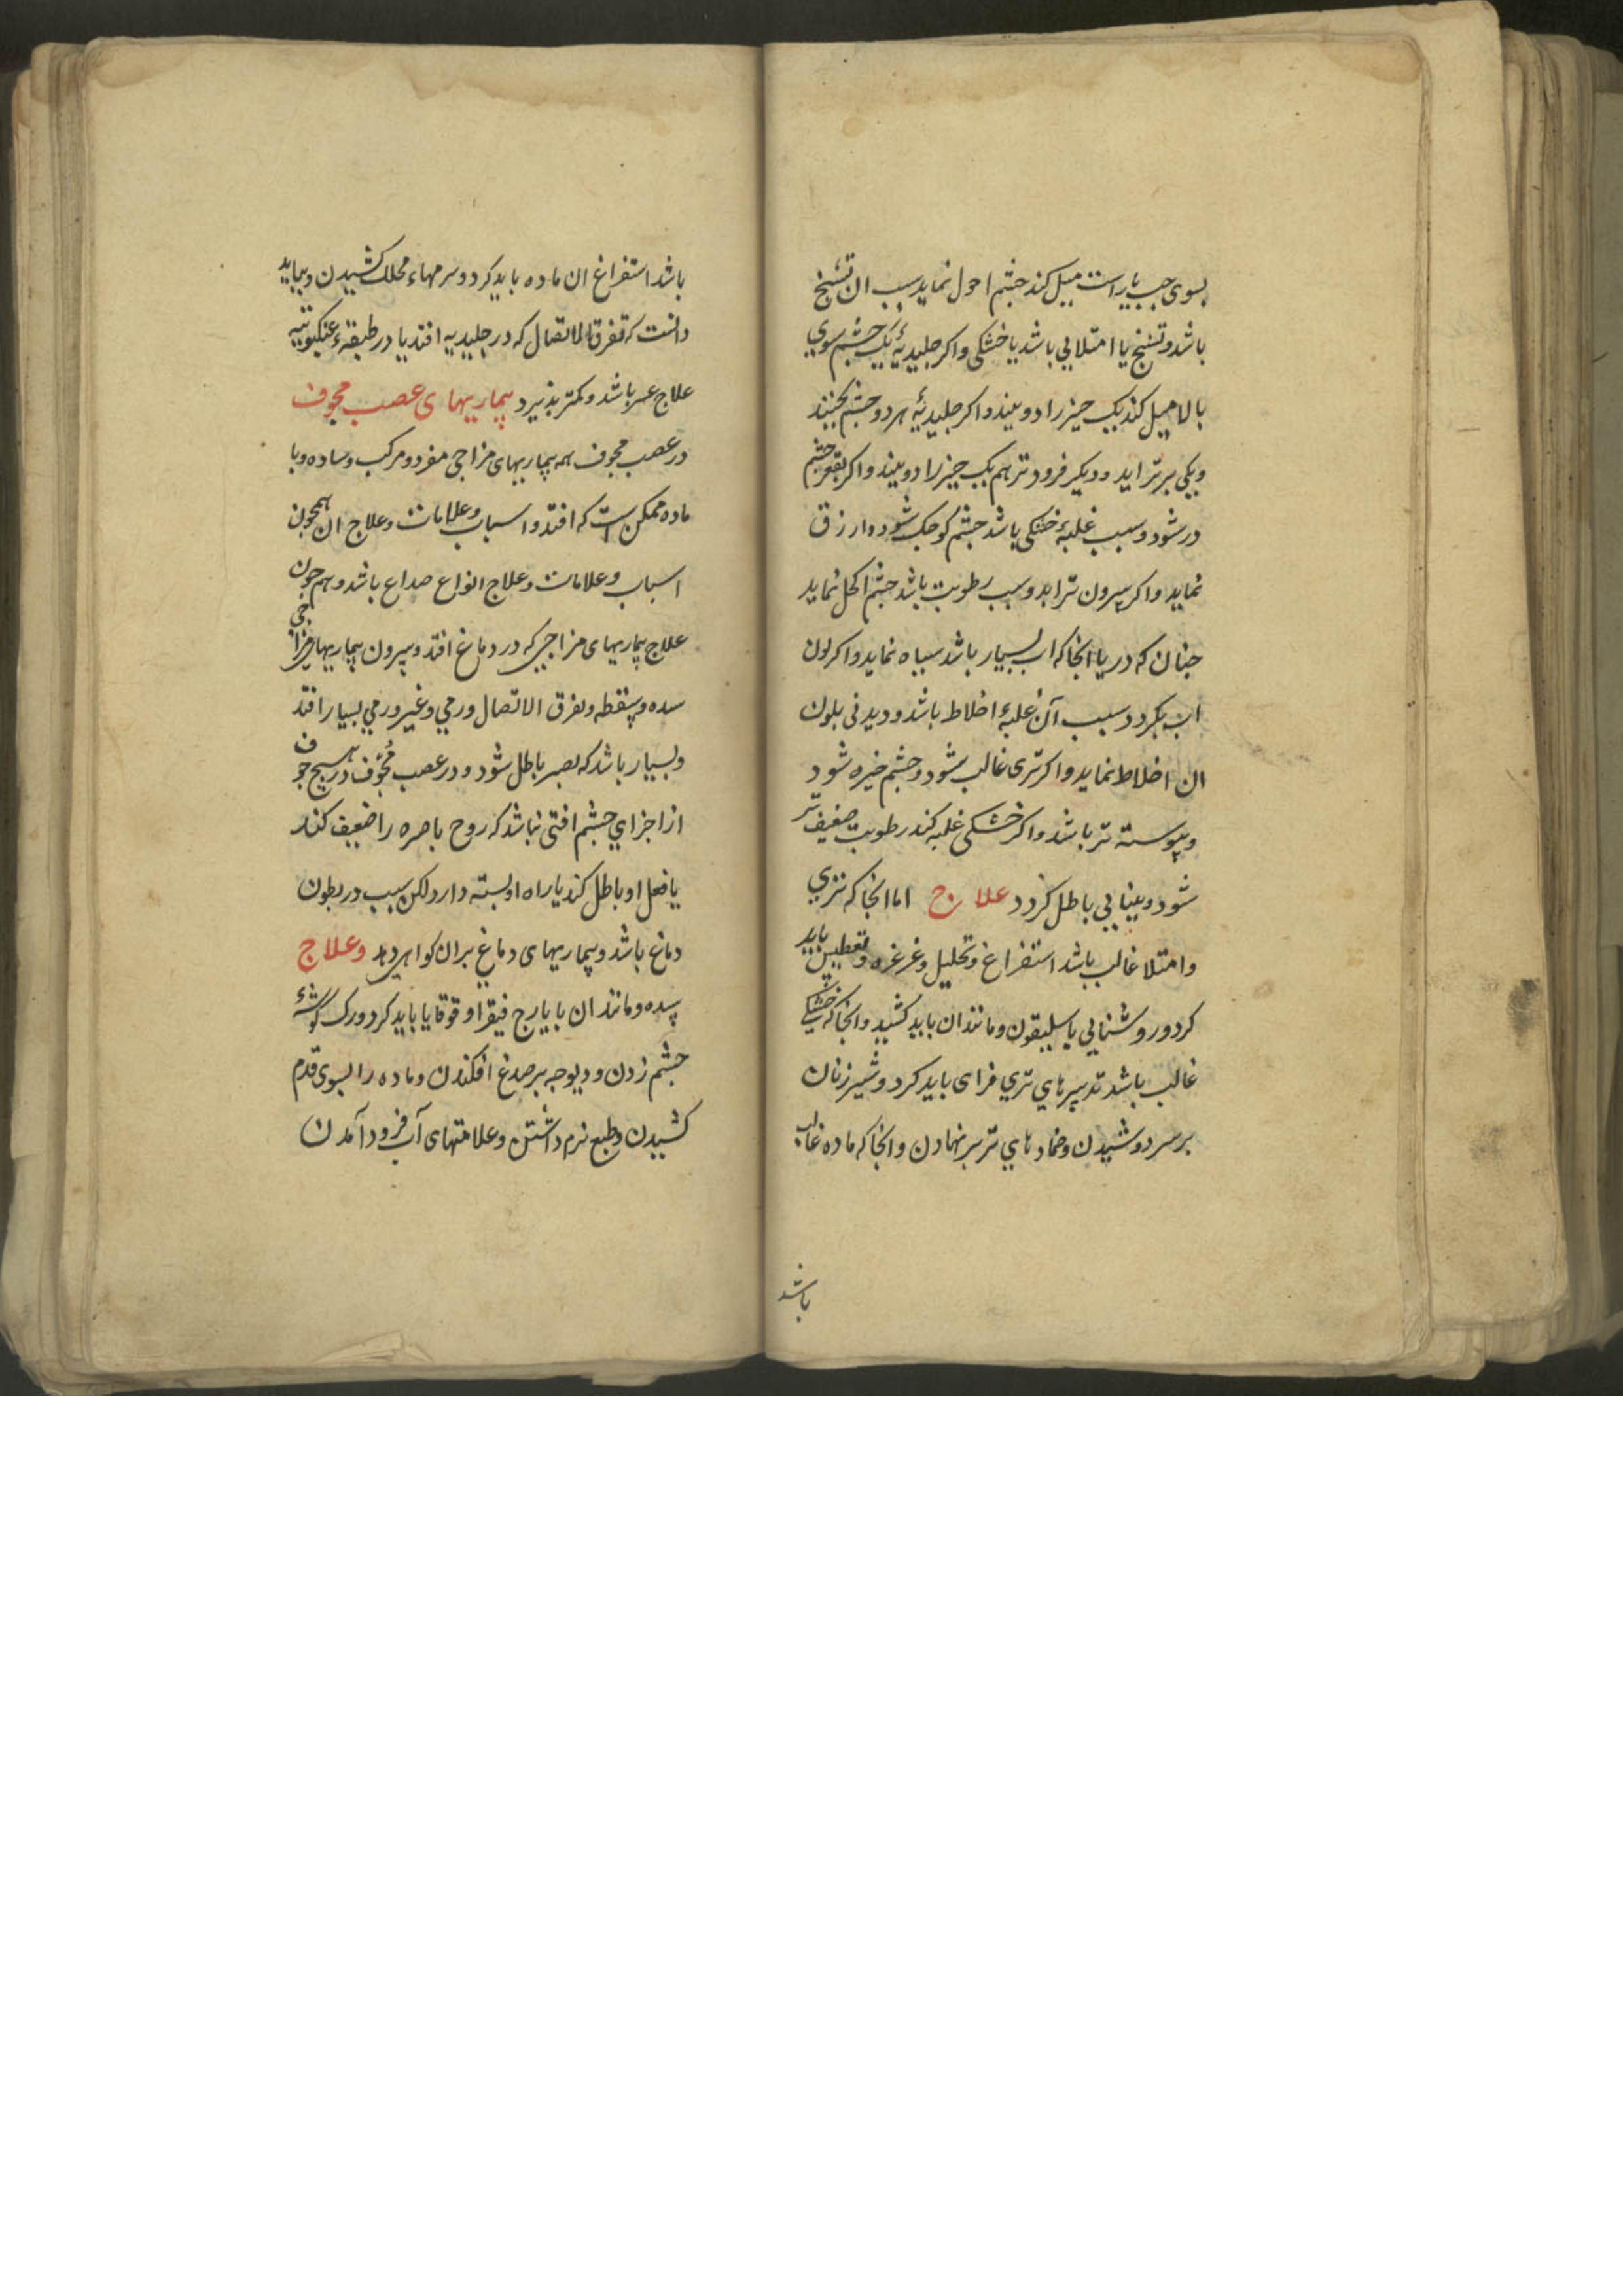 بسوی جب یا راست میل کند جشم احول نماید سبب ان تشنج
باشد و تشنج یا امتلایی باشد یا خشکی و اکر جلیدیهٔ یک جشم سوی
بالا میل کند یک جیز را دو بیند و اکر جلیدیهٔ هر دو جشم بجنبند
و یکی برتر اید و دیکر فرود تر هم یک جیز را دو بیند و اکر بقعر جشم
در شود و سبب غلبهٔ خشکی باشد جشم کوجک شود و ازرق
نماید و اکر بیرون تر اید و سبب رطوبت باشد جشم اکحل نماید
جنان که دریا انجا که اب بسیار باشد سیاه نماید و اکر لون
اب بکردد سبب آن غلبهٔ اخلاط باشد و دیدنی بلون
ان اخلاط نماید و اکر تری غالب شود و جشم خیره شود
و پیوسته تر باشد و اکر خشکی غلبه کند رطوبت ضعیف تر
شود و بینایی باطل کردد علاج اما انجا که تری
و امتلا غالب باشد استفراغ و تحلیل و غرغره و تعطیس باید
کرد و روشنایی باسلیقون و مانند ان باید کشید و انجا که خشکی
غالب باشد تدبیرهای تری فزای باید کرد و شیر زنان
بر سر دوشیدن و ضمادهای تر بر نهادن و انجا که ماده غالب
باشد
باشد استفراغ ان ماده باید کرد و سرمهاء محلل کشیدن و بباید
دانست که تفرق الاتصال که در جلیدیه افتد یا در طبقهٔ عنکبوتیه
علاج عسر باشد و کمتر پذیرد بیماریهای عصب مجوف
در عصب مجوف همه بیماریهای مزاجی مفرد و مرکب و ساده و با
ماده ممکن است که افتد و اسباب و علامات و علاج ان همجون
اسباب و علامات و علاج انواع صداع باشد و هم جون
علاج بیماریهای مزاجی که در دماغ افتد و بیرون بیماریهای مزاجی
سده و سقطه و تفرق الاتصال ورمی و غیر ورمی بسیار افتد
و بسیار باشد که بصر باطل شود و در عصب مُجوّف در هیج جوف
از اجزای جشم افتی نباشد که روح باصره را ضعیف کند
یا فعل او باطل کند یا راه او بسته دارد لکن سبب در بطون
دماغ باشد و بیماریهای دماغ بران کواهی دهد و علاج
سده و مانند ان بایارج فیقرا و قوقایا باید کرد و رک کوشهٔ
جشم زدن و دیوجه بر صدغ افکندن و ماده را بسوی قدم
کشیدن و طبع نرم داشتن و علامتهای آب فرود آمدن